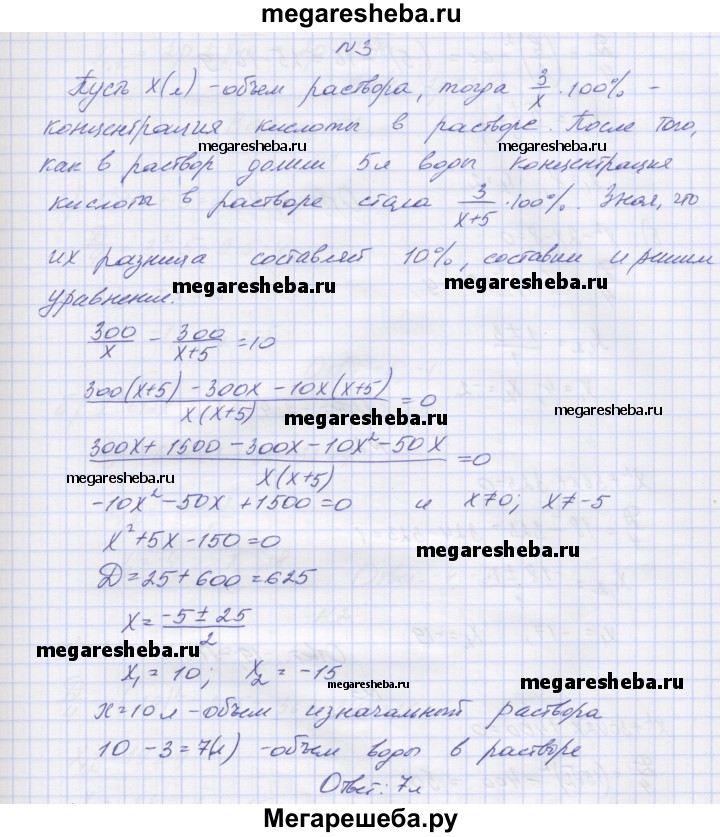 megaresheba.ru
№3
Пусть x(л) - объем раствора, тогда 3/x · 100% -
концентрация кислоты в растворе. После того,
megaresheba.ru megaresheba.ru
как в раствор долили 5л воды концентрация
megaresheba.ru
кислоты в растворе стала 3/(x+5) · 100%. Зная, что
их разница составляет 10%, составим и решим
megaresheba.ru megaresheba.ru
уравнение.
300/x - 300/(x+5) = 10
(300(x+5) - 300x - 10x(x+5))/(x(x+5)) = 0
megaresheba.ru megaresheba.ru
(300x + 1500 - 300x - 10x² - 50x)/(x(x+5)) = 0
megaresheba.ru megaresheba.ru
-10x² - 50x + 1500 = 0 и x≠0; x≠-5
x² + 5x - 150 = 0
megaresheba.ru
D = 25 + 600 = 625
x = (-5 ± 25)/2
megaresheba.ru
x₁ = 10; x₂ = -15
megaresheba.ru megaresheba.ru
x = 10 л - объем изначальный раствора
10 - 3 = 7(л) - объем воды в растворе
Ответ: 7л
Мегарешеба.ру